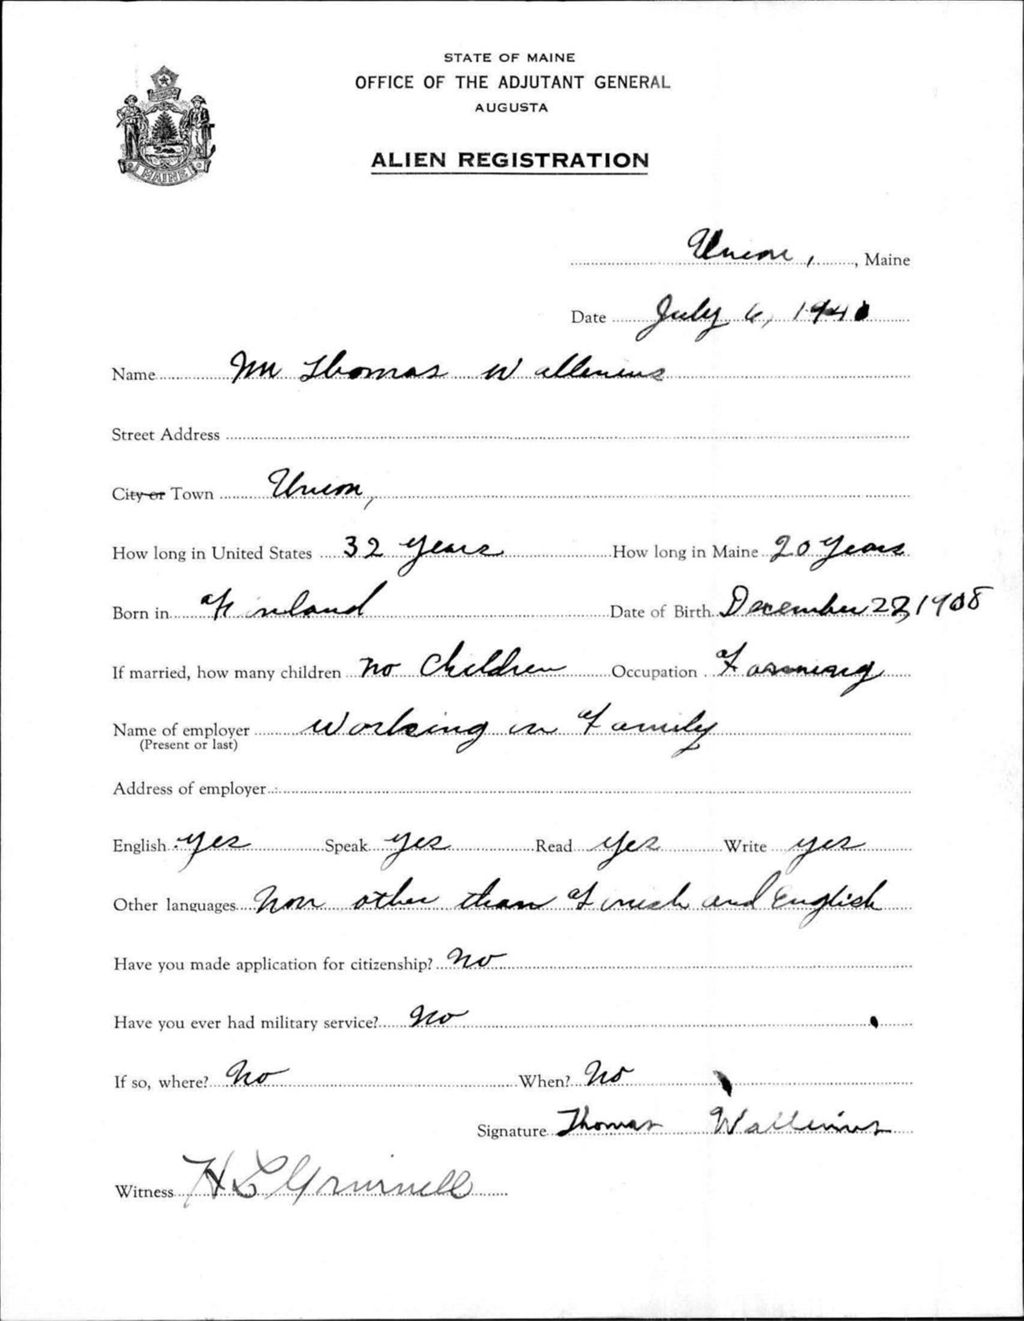 STATE OF MAINE
OFFICE OF THE ADJUTANT GENERAL
AUGUSTA
ALIEN REGISTRATION
MAINE
Union, , Maine
Date July 6, 1940
Name Mr Thomas Wallenius
Street Address
City or Town Union,
How long in United States 32 years How long in Maine 20 years
Born in Finland Date of Birth December 22, 1908
If married, how many children no Children Occupation Farming
Name of employer Working in Family
(Present or last)
Address of employer
English yes Speak yes Read yes Write yes
Other languages Non other than Finish and English
Have you made application for citizenship? No
Have you ever had military service? No
If so, where? No When? No
Signature Thomas Wallenius
Witness H L Grinnell